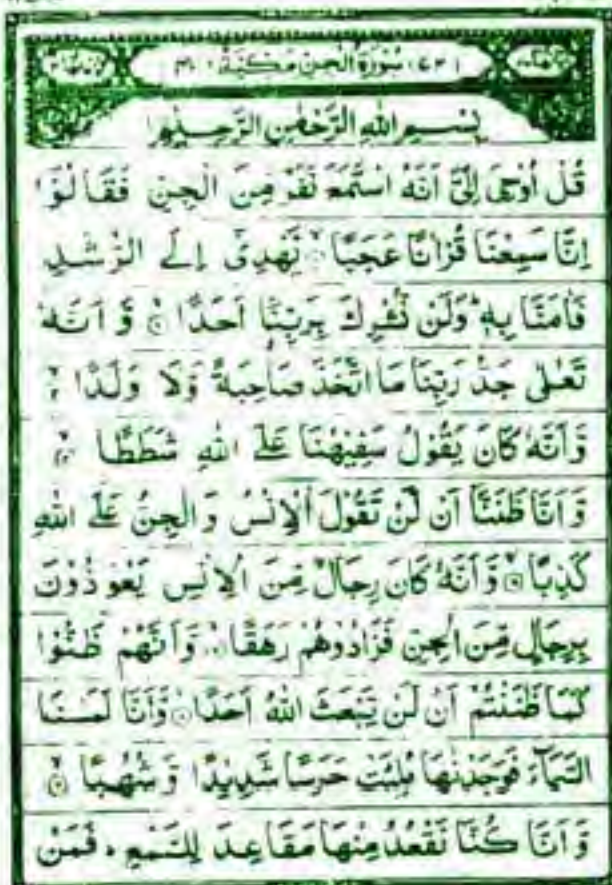 (٧٢) سُوْرَةُ الْجِنِّ مَكِّيَّةٌ (٤٠)
بِسْمِ اللّٰهِ الرَّحْمٰنِ الرَّحِيْمِ
قُلْ اُوْحِیَ اِلَیَّ اَنَّهُ اسْتَمَعَ نَفَرٌ مِّنَ الْجِنِّ فَقَالُوْۤا
اِنَّا سَمِعْنَا قُرْاٰنًا عَجَبًا ۙ یَّهْدِیْۤ اِلَی الرُّشْدِ
فَاٰمَنَّا بِهٖ ؕ وَلَنْ نُّشْرِكَ بِرَبِّنَاۤ اَحَدًا ۙ وَّ اَنَّهٗ
تَعٰلٰی جَدُّ رَبِّنَا مَا اتَّخَذَ صَاحِبَةً وَّلَا وَلَدًا ۙ
وَّاَنَّهٗ كَانَ یَقُوْلُ سَفِیْهُنَا عَلَی اللّٰهِ شَطَطًا ۙ
وَّ اَنَّا ظَنَنَّاۤ اَنْ لَّنْ تَقُوْلَ الْاِنْسُ وَ الْجِنُّ عَلَی اللّٰهِ
كَذِبًا ۙ وَّاَنَّهٗ كَانَ رِجَالٌ مِّنَ الْاِنْسِ یَعُوْذُوْنَ
بِرِجَالٍ مِّنَ الْجِنِّ فَزَادُوْهُمْ رَهَقًا ۙ وَّاَنَّهُمْ ظَنُّوْا
كَمَا ظَنَنْتُمْ اَنْ لَّنْ یَّبْعَثَ اللّٰهُ اَحَدًا ۙ وَّاَنَّا لَمَسْنَا
السَّمَآءَ فَوَجَدْنٰهَا مُلِئَتْ حَرَسًا شَدِیْدًا وَّ شُهُبًا ۙ
وَّ اَنَّا كُنَّا نَقْعُدُ مِنْهَا مَقَاعِدَ لِلسَّمْعِ ؕ فَمَنْ